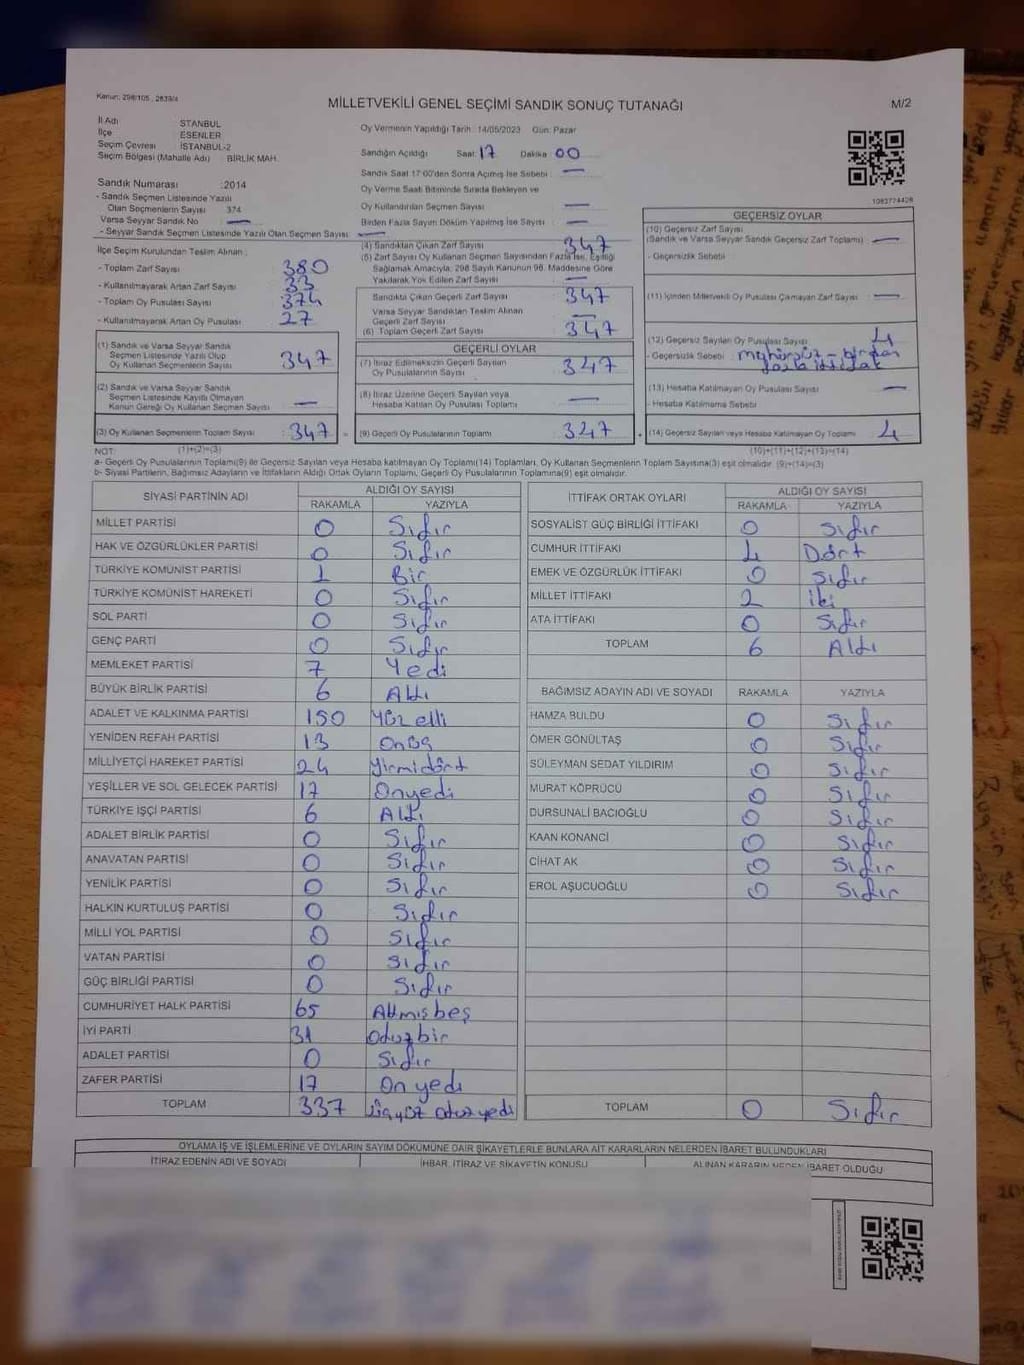 Kanun: 298/105, 2839/4
MİLLETVEKİLİ GENEL SEÇİMİ SANDIK SONUÇ TUTANAĞI
M/2
İl Adı : İSTANBUL
İlçe : ESENLER
Seçim Çevresi : İSTANBUL-2
Seçim Bölgesi (Mahalle Adı) : BİRLİK MAH.
Sandık Numarası : 2014
- Sandık Seçmen Listesinde Yazılı
Olan Seçmenlerin Sayısı : 374
Varsa Seyyar Sandık No —
- Seyyar Sandık Seçmen Listesinde Yazılı Olan Seçmen Sayısı: —
Oy Vermenin Yapıldığı Tarih : 14/05/2023 Gün: Pazar
Sandığın Açıldığı Saat: 17 Dakika 00
Sandık Saat 17:00'den Sonra Açılmış İse Sebebi : —
Oy Verme Saati Bitiminde Sırada Bekleyen ve
Oy Kullandırılan Seçmen Sayısı : —
Birden Fazla Sayım Döküm Yapılmış İse Sayısı : —
1083774428
İlçe Seçim Kurulundan Teslim Alınan :
- Toplam Zarf Sayısı : 380
- Kullanılmayarak Artan Zarf Sayısı : 33
- Toplam Oy Pusulası Sayısı : 374
- Kullanılmayarak Artan Oy Pusulası : 27
(1) Sandık ve Varsa Seyyar Sandık
Seçmen Listesinde Yazılı Olup
Oy Kullanan Seçmenlerin Sayısı : 347
(2) Sandık ve Varsa Seyyar Sandık
Seçmen Listesinde Kayıtlı Olmayan
Kanun Gereği Oy Kullanan Seçmen Sayısı : —
(3) Oy Kullanan Seçmenlerin Toplam Sayısı : 347
(4) Sandıktan Çıkan Zarf Sayısı : 347
(5) Zarf Sayısı Oy Kullanan Seçmen Sayısından Fazla İse, Eşitliği
Sağlamak Amacıyla, 298 Sayılı Kanunun 98. Maddesine Göre
Yakılarak Yok Edilen Zarf Sayısı : —
Sandıkta Çıkan Geçerli Zarf Sayısı : 347
Varsa Seyyar Sandıktan Teslim Alınan
Geçerli Zarf Sayısı : —
(6) Toplam Geçerli Zarf Sayısı : 347
GEÇERLİ OYLAR
(7) İtiraz Edilmeksizin Geçerli Sayılan
Oy Pusulalarının Sayısı : 347
(8) İtiraz Üzerine Geçerli Sayılan veya
Hesaba Katılan Oy Pusulası Toplamı : —
(9) Geçerli Oy Pusulalarının Toplamı : 347
GEÇERSİZ OYLAR
(10) Geçersiz Zarf Sayısı
(Sandık ve Varsa Seyyar Sandık Geçersiz Zarf Toplamı) : —
- Geçersizlik Sebebi :
(11) İçinden Milletvekili Oy Pusulası Çıkmayan Zarf Sayısı : —
(12) Geçersiz Sayılan Oy Pusulası Sayısı : 4
- Geçersizlik Sebebi : mühürsüz - birden
fazla ittifak
(13) Hesaba Katılmayan Oy Pusulası Sayısı : —
- Hesaba Katılmama Sebebi :
(14) Geçersiz Sayılan veya Hesaba Katılmayan Oy Toplamı : 4
NOT: (1)+(2)=(3) (10)+(11)+(12)+(13)=(14)
a- Geçerli Oy Pusulalarının Toplamı(9) ile Geçersiz Sayılan veya Hesaba katılmayan Oy Toplamı(14) Toplamları, Oy Kullanan Seçmenlerin Toplam Sayısına(3) eşit olmalıdır. (9)+(14)=(3)
b- Siyasi Partilerin, Bağımsız Adayların ve İttifakların Aldığı Ortak Oyların Toplamı, Geçerli Oy Pusulalarının Toplamına(9) eşit olmalıdır.
SİYASİ PARTİNİN ADI ALDIĞI OY SAYISI
RAKAMLA YAZIYLA
MİLLET PARTİSİ 0 Sıfır
HAK VE ÖZGÜRLÜKLER PARTİSİ 0 Sıfır
TÜRKİYE KOMÜNİST PARTİSİ 1 Bir
TÜRKİYE KOMÜNİST HAREKETİ 0 Sıfır
SOL PARTİ 0 Sıfır
GENÇ PARTİ 0 Sıfır
MEMLEKET PARTİSİ 7 Yedi
BÜYÜK BİRLİK PARTİSİ 6 Altı
ADALET VE KALKINMA PARTİSİ 150 Yüz elli
YENİDEN REFAH PARTİSİ 13 Onüç
MİLLİYETÇİ HAREKET PARTİSİ 24 Yirmidört
YEŞİLLER VE SOL GELECEK PARTİSİ 17 Onyedi
TÜRKİYE İŞÇİ PARTİSİ 6 Altı
ADALET BİRLİK PARTİSİ 0 Sıfır
ANAVATAN PARTİSİ 0 Sıfır
YENİLİK PARTİSİ 0 Sıfır
HALKIN KURTULUŞ PARTİSİ 0 Sıfır
MİLLİ YOL PARTİSİ 0 Sıfır
VATAN PARTİSİ 0 Sıfır
GÜÇ BİRLİĞİ PARTİSİ 0 Sıfır
CUMHURİYET HALK PARTİSİ 65 Altmışbeş
İYİ PARTİ 31 Otuzbir
ADALET PARTİSİ 0 Sıfır
ZAFER PARTİSİ 17 On yedi
TOPLAM 337 Üçyüz otuz yedi
İTTİFAK ORTAK OYLARI ALDIĞI OY SAYISI
RAKAMLA YAZIYLA
SOSYALİST GÜÇ BİRLİĞİ İTTİFAKI 0 Sıfır
CUMHUR İTTİFAKI 4 Dört
EMEK VE ÖZGÜRLÜK İTTİFAKI 0 Sıfır
MİLLET İTTİFAKI 2 iki
ATA İTTİFAKI 0 Sıfır
TOPLAM 6 Altı
BAĞIMSIZ ADAYIN ADI VE SOYADI RAKAMLA YAZIYLA
HAMZA BULDU 0 Sıfır
ÖMER GÖNÜLTAŞ 0 Sıfır
SÜLEYMAN SEDAT YILDIRIM 0 Sıfır
MURAT KÖPRÜCÜ 0 Sıfır
DURSUNALİ BACIOĞLU 0 Sıfır
KAAN KONANCİ 0 Sıfır
CİHAT AK 0 Sıfır
EROL AŞUCUOĞLU 0 Sıfır
TOPLAM 0 Sıfır
OYLAMA İŞ VE İŞLEMLERİNE VE OYLARIN SAYIM DÖKÜMÜNE DAİR ŞİKAYETLERLE BUNLARA AİT KARARLARIN NELERDEN İBARET BULUNDUKLARI
İTİRAZ EDENİN ADI VE SOYADI İHBAR, İTİRAZ VE ŞİKAYETİN KONUSU ALINAN KARARIN NEDEN İBARET OLDUĞU